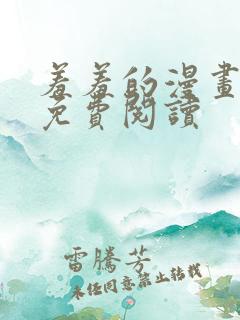 羞羞的漫畫
免費閱讀
雷騰芳
未任同意禁止轉載